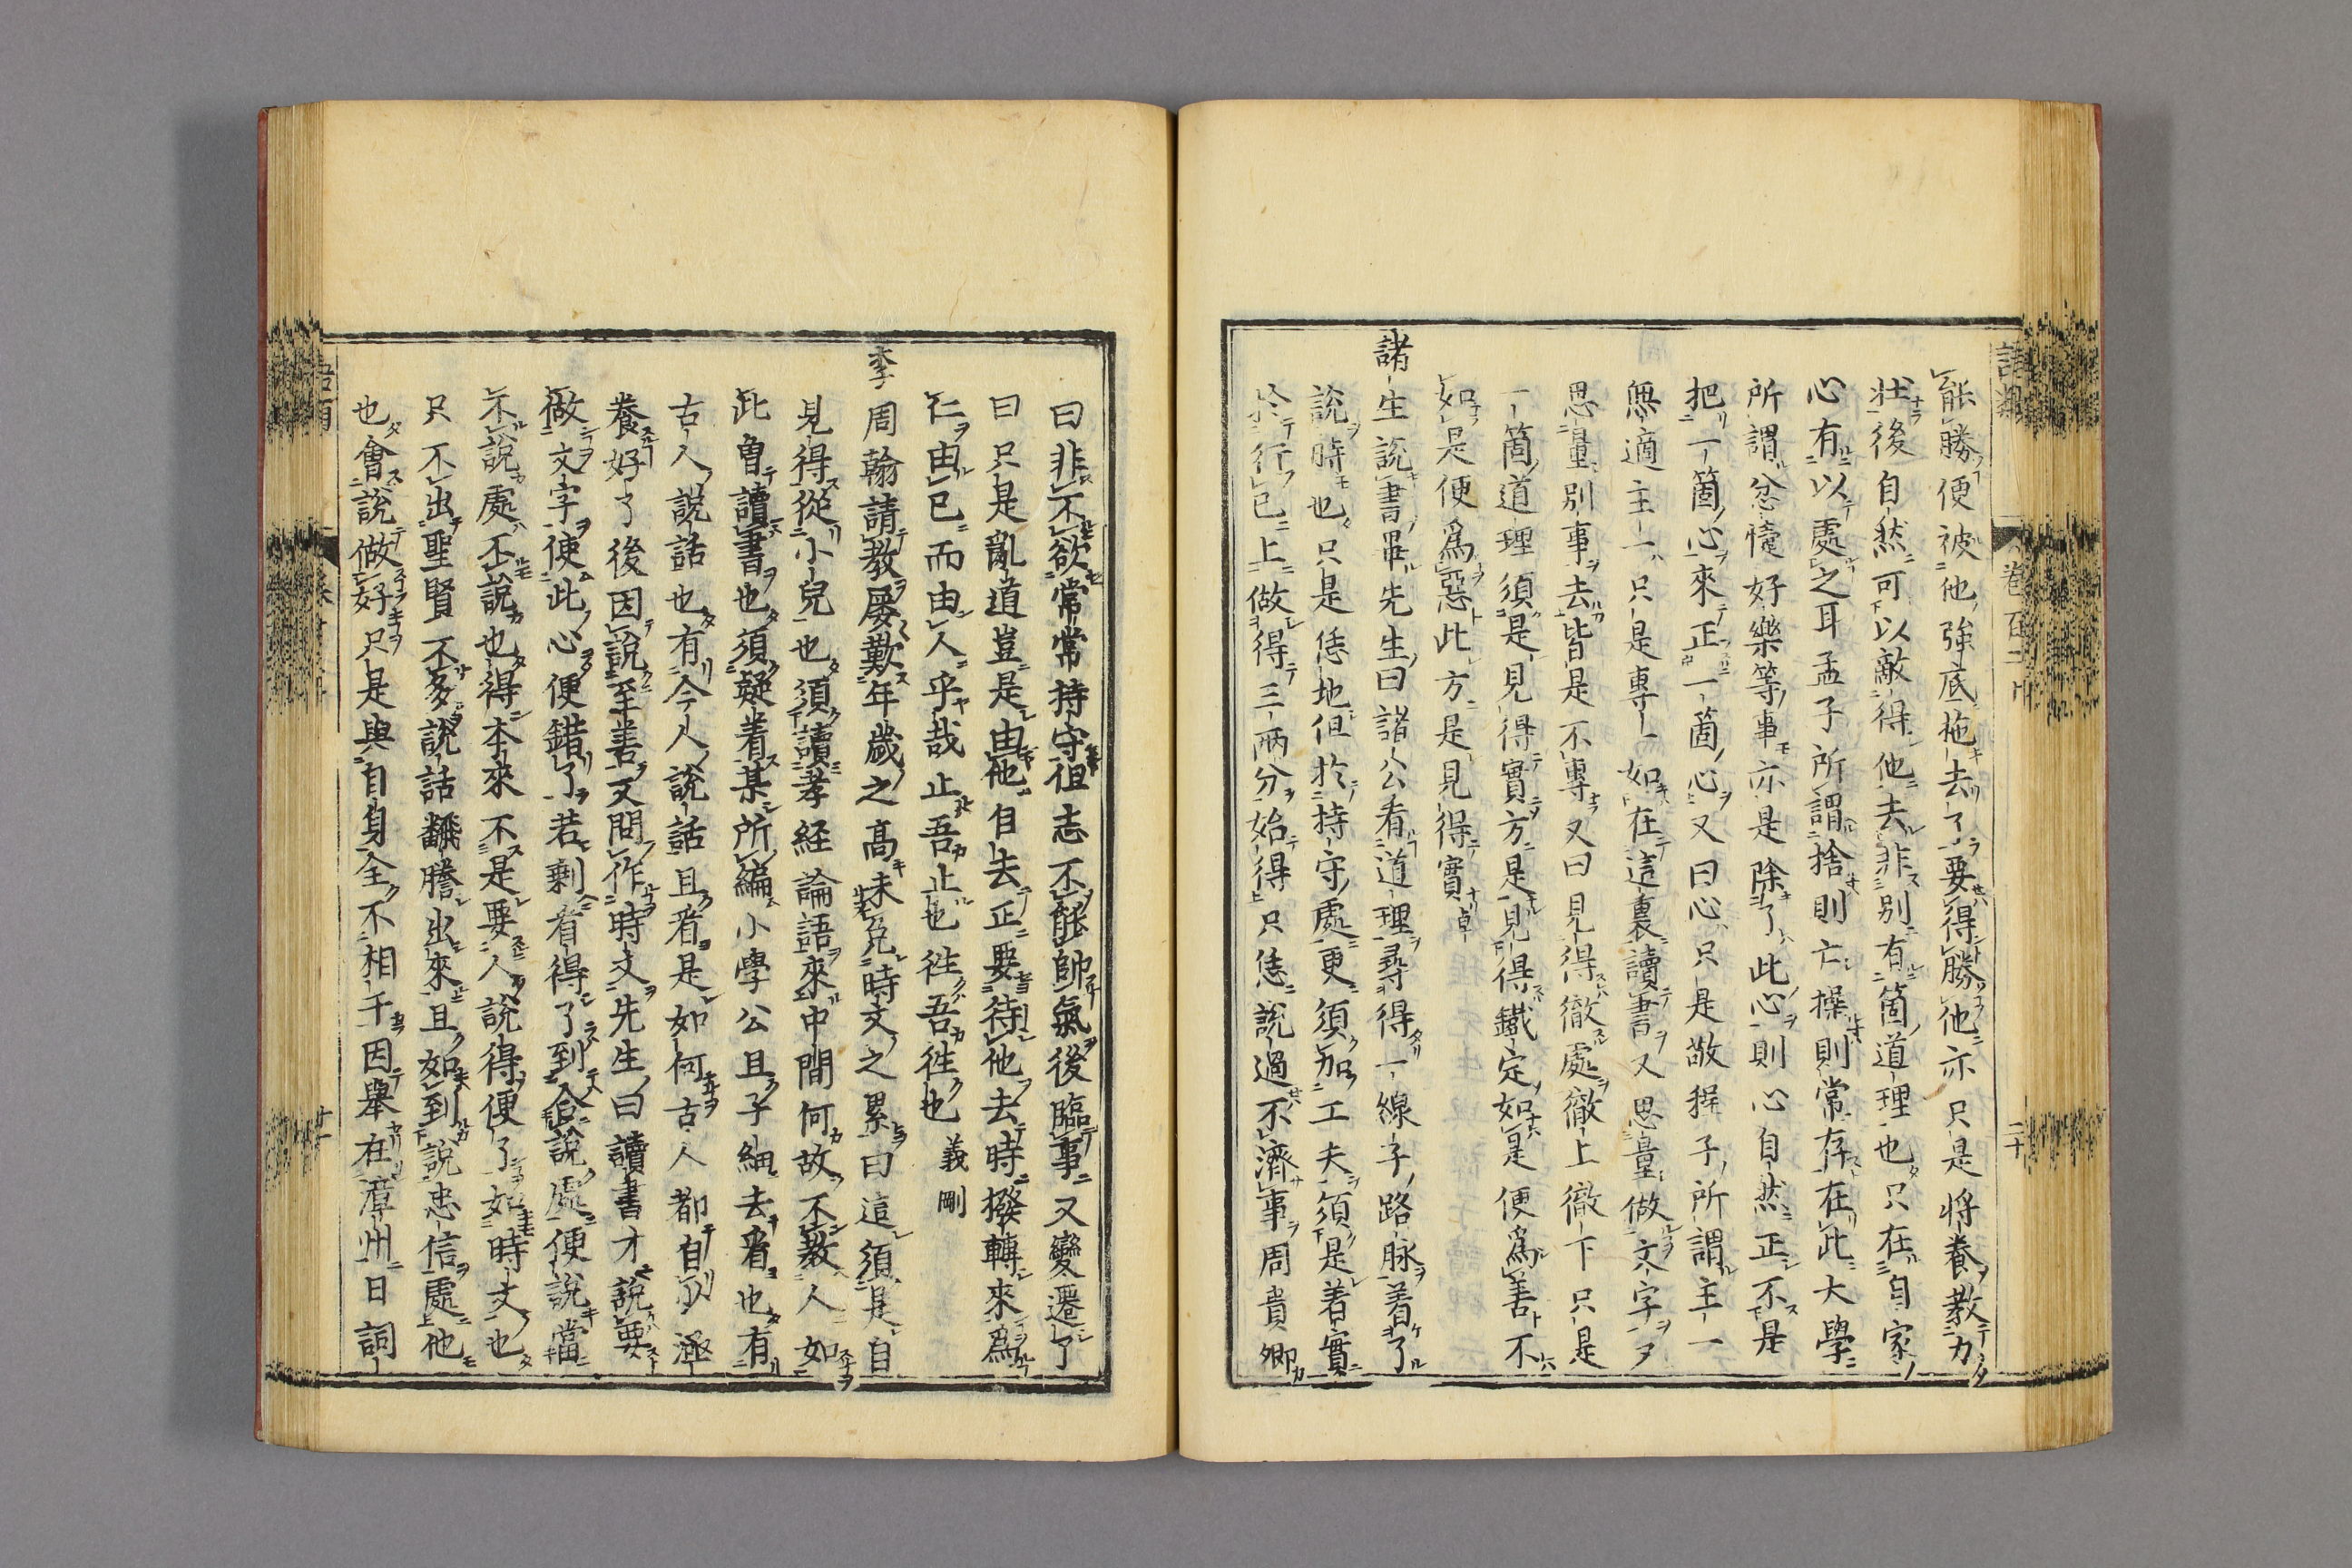 能勝便被他強底拖去了要得勝他亦只是將養教力
壯後自然可以敵得他去非別有箇道理也只在自家
心有以處之耳孟子所謂捨則亡操則常存在此大學
所謂忿懥好樂等事亦是除了此心則心自然正不是
把一箇心來正一箇心又曰心只是敬程子所謂主一
無適主一只是專一如在這裏讀書又思量做文字又
思量別事去皆是不專又曰見得徹處徹上徹下只是
一箇道理須是見得實方是見得鐵定如是便爲善不
如是便爲惡此方是見得實卓
諸生說書畢先生曰諸公看道理尋得一線子路脉着了
說時也只是恁地但於持守處更須加工夫須是着實
於行已上做得三兩分始得只恁說過不濟事周貴卿
曰非不欲常常持守但志不能帥氣後臨事又變遷了
曰只是亂道豈是由他自去正要待他去時撥轉來爲
仁由已而由人乎哉止吾止也徃吾徃也義剛
李周翰請教屡歎年歲之高未免時文之累曰這須是自
見得從小兒也須讀孝経論語來中間何故不教人如
此曽讀書也須疑着某所編小學公且子細去看也有
古人說話也有今人說話且看是如何古人都自少涵
養好了後因說至善又問作時文先生曰讀書才說要
做文字使此心便錯了若剩看得了到合說處便說當
不說處不說也得本來不是要人說得便了如時文也
只不出聖賢不多說話翻謄出來且如到說忠信處他
也會說做好只是與自身全不相干因舉在漳州日詞
語類
卷百二十
二十